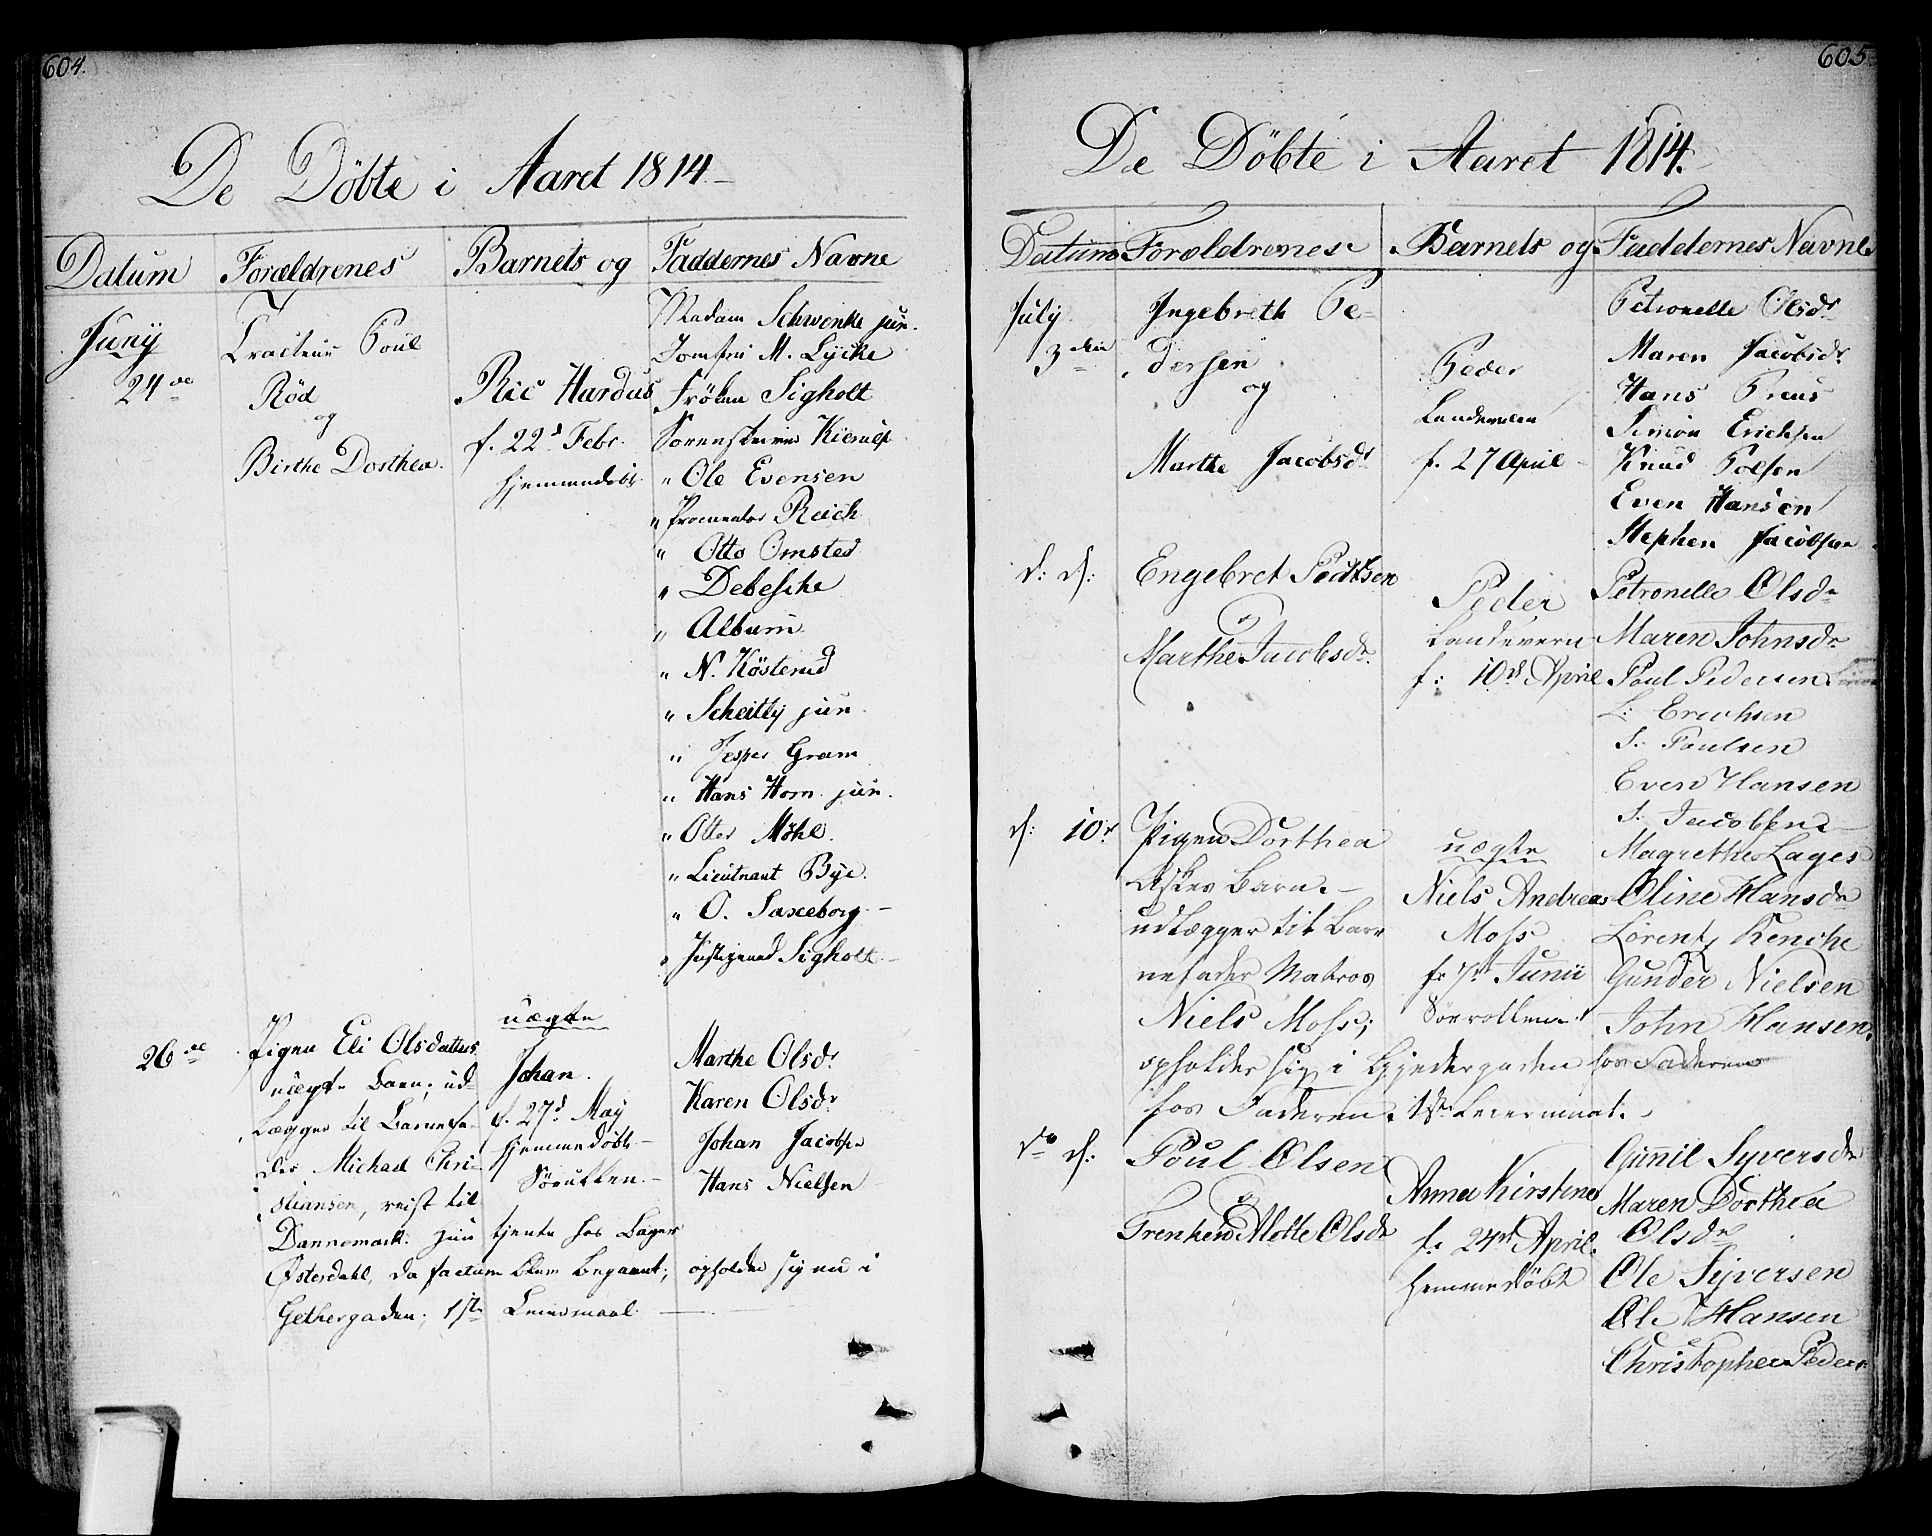 604.
De Döbte i Aaret 1814
Datum Forældrenes Barnets og Faddernes Navne
Juny
24de
Tracteur Poul
Röd
og
Birthe Dorthea.
Ric Hardus
f. 22d Febr.
hjemmedöbt
Madam Schwenke jun.
Jomfru M. Lycke
Fröken Sigholt
Sorenskriver Kierulf
" Ole Evensen
" Procurator Reich
" Otto Omsted
" Debesche
" Album
" N. Kösterud
" Scheitly jun.
" Jesper Gram
" Hans Horn jun.
" Otter Möhl.
" Lieutnant Bye.
" O. Saxeborg
" Justizraad Sigholt
26de
Pigen Eli Olsdatters
uægte Barn; ud-
lægger til Barnefa-
der Michael Chri-
stiansen, reist til
Dannemark. hun tjente hos Bager
Østerdahl, da factum blev begaaet; opholder sig nu i
Gethergaden; 1ste Leiermaal.
uægte
Johan.
f. 27d May
hjemmedöbt
Marthe Olsdr
Karen Olsdr
Johan Jacobsen
Hans Nielsen
605.
De Döbte i Aaret 1814.
Datum Forældrenes Barnets og Faddernes Navne
July
3den
Ingebreth Pe-
dersen
og
Marthe Jacobsdr
Peder
Landeværn
f. 27 April
Petronelle Olsdr
Maren Jacobsdr
Hans Preus
Simon Erichsen
Knud Polsen
Even Hansen
Stephen Jacobsen
d: d:
Engebret Pedersen
og
Marthe Jacobsdr.
Peder
Landevern
f: 10d April
Petronelle Olsdr
Maren Johnsdr
Poul Pedersen
L: Erichsen
S. Poulsen
Even Hansen
S. Jacobsen
d: 10d
Pigen Dorthea
Barn
udlægger til Bar-
nefader Matros
Niels Moss;
opholder sig i Gjedergaden hos Faderen
hos Faderen. 1ste Leiermaal.
uægte
Niels Andreas
Moss
f. 7d Junii
Sörollen
Magrethe Lages
Oline Hansdr
Lorentz Kenche
Gunder Nielsen
John Hansen.
do d:
Poul Olsen
og
Trenken Alotte Olsdr
Anne Kirstine
f. 24d April.
hemmedöbt
Gunil Syversdr
Maren Dorthea
Olsdr
Ole Syversen
Ole Hansen
Christopher Peders